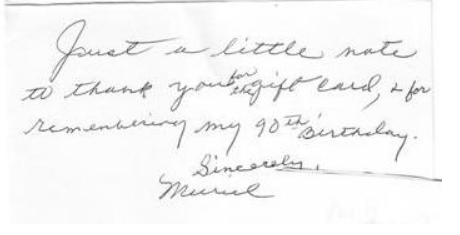 Just a little note
to thank you for the gift card, & for
remembering my 90th Birthday.
Sincerely,
Muriel